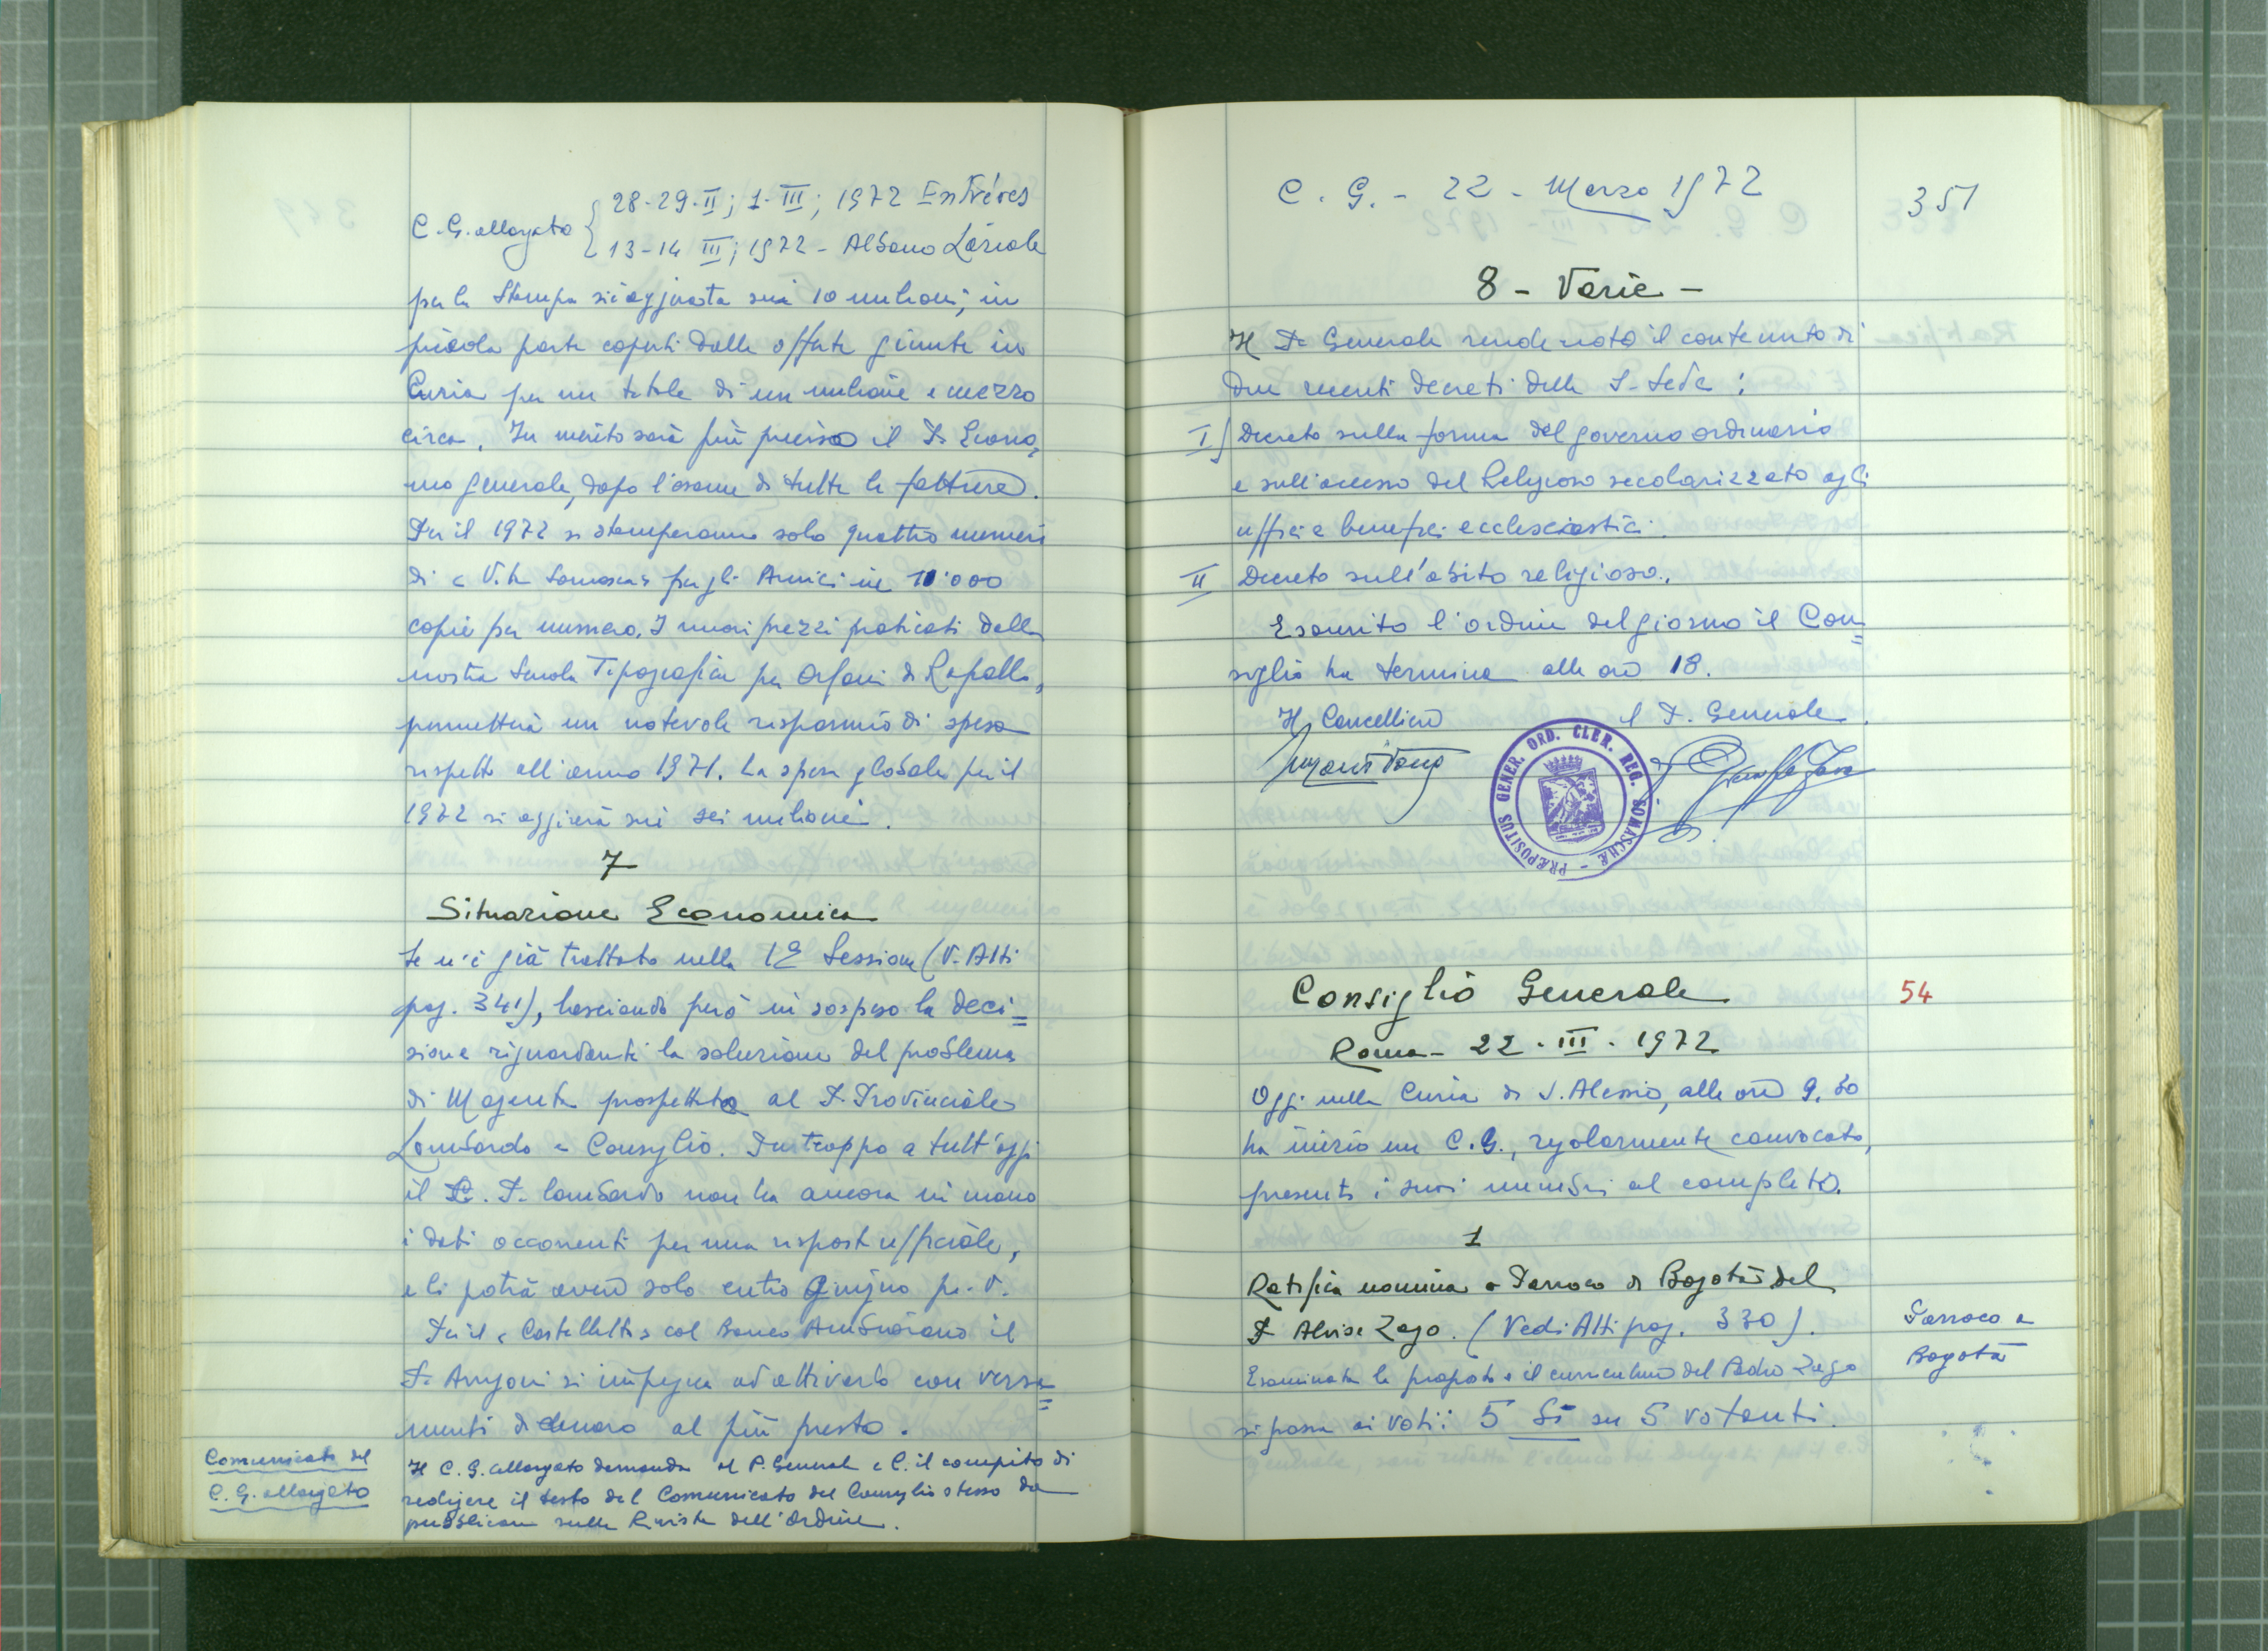 C.G. allargato { 28-29-II; 1-III; 1972 Entrèves
13-14 III; 1972 - Albano Laziale
per la Stampa si è aggirata sui 10 milioni, in
piccola parte coperti dalle offerte giunte in
Curia per un totale di un milione e mezzo
circa. In merito sarà più preciso il P. Econo=
mo generale, dopo l'esame di tutte le fatture.
Per il 1972 si stamperanno solo quattro numeri
di « Vita Somasca » per gli Amici in 11.000
copie per numero. I nuovi prezzi praticati dalla
nostra Scuola Tipografica per Orfani di Rapallo,
permetterà un notevole risparmio di spesa
rispetto all'anno 1971. La spesa globale per il
1972 si aggirerà sui sei milioni.
7
Situazione Economica
Se n'è già trattato nella 1ª Sessione (V. Atti
pag. 341), lasciando però in sospeso la deci=
sione riguardante la soluzione del problema
di Magenta prospettato al P. Provinciale
Lombardo e Consiglio. Purtroppo a tutt'oggi
il P. P. Lombardo non ha ancora in mano
i dati occorrenti per una rispost ufficiale,
e li potrà avere solo entro Giugno p.v.
Per il « Castelletto » col Banco Ambrosiano il
P. Arrigoni si impegna ad attivarlo con versa=
menti di denaro al più presto.
Comunicato del
C. G. allargato
Il C. G. allargato demanda al P. Generale e C. il compito di
redigere il testo del Comunicato del Consiglio stesso da
pubblicare sulla Rivista dell'Ordine.
C. G. - 22 - Marzo 1972
351
8 - Varie -
Il P. Generale rende noto il contenuto di
due recenti decreti della S. Sede:
I) Decreto sulla forma del governo ordinario
e sull'accesso del Religioso secolarizzato agli
uffici e benefici ecclesiastici.
II Decreto sull'abito religioso.
Esaurito l'ordine del giorno il Con=
siglio ha termine alle ore 18.
Il Cancelliere
il P. Generale
PRÆPOSITUS GENER. ORD. CLER. REG. SOMASCHÆ
Consiglio Generale
54
Roma - 22 - III - 1972
Oggi nella Curia di S. Alessio, alle ore 9,30
ha inizio un C.G., regolarmente convocato,
presenti i suoi membri al completo.
1
Ratifica nomina a Parroco di Bogotà del
P. Alvise Zago. (Vedi Atti pag. 330).
Parroco a
Bogotà
Esaminata la proposta e il curriculum del Padre Zago
si passa ai voti: 5 Sì su 5 votanti.